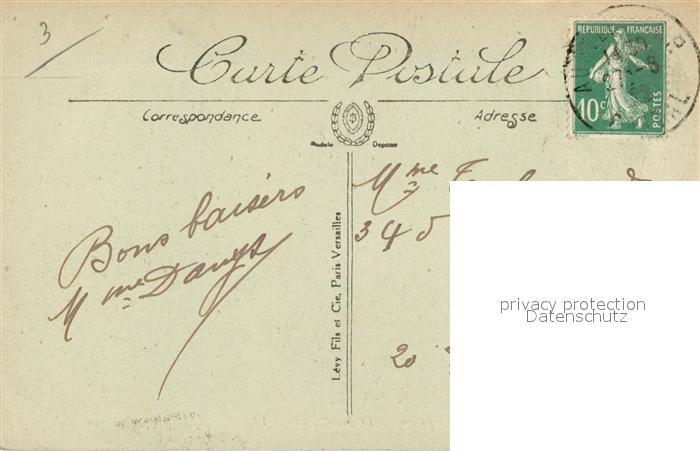 3
Carte Postale
RÉPUBLIQUE FRANÇAISE
10c
POSTES
Correspondance
Adresse
Modèle Déposé
Mme
345
Bons baisers
Mme
20
Lévy Fils et Cie, Paris-Versailles
privacy protection
Datenschutz